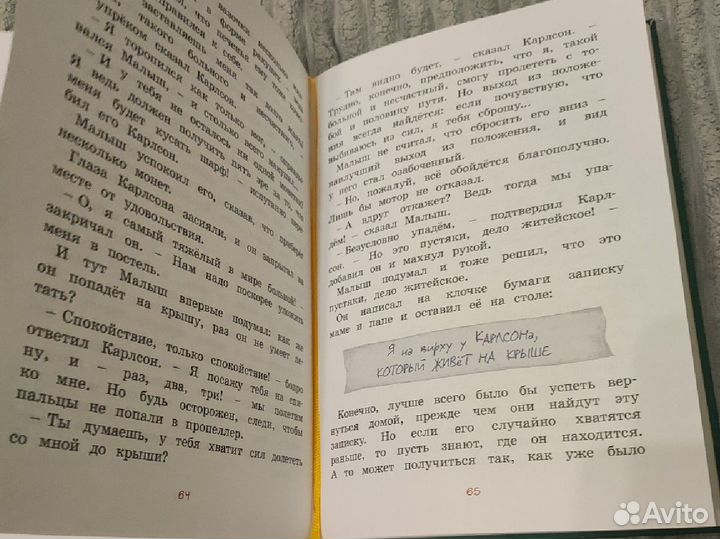 в форме ракушки
упрёком сказал Карлсон.
– Я торопился, как только мог, –
вался Малыш,
– И у тебя не осталось ни одной монетки?
Я ведь должен получить пять эре за то, что
меня будет кусать шарф! – испуганно пере-
бил его Карлсон.
Малыш успокоил его, сказав, что приберёг
несколько монет.
Глаза Карлсона засияли, и он запрыгал на
месте от удовольствия.
– О, я самый тяжёлый в мире больной! –
закричал он. – Нам надо поскорее уложить
меня в постель.
И тут Малыш впервые подумал: как же
он попадёт на крышу, раз он не умеет ле-
тать?
– Спокойствие, только спокойствие! – бодро
ответил Карлсон. – Я посажу тебя на спи-
ну, и – раз, два, три! – мы полетим
ко мне. Но будь осторожен, следи, чтобы
пальцы не попали в пропеллер.
– Ты думаешь, у тебя хватит сил долететь
со мной до крыши?
64
– Там видно будет, – сказал Карлсон. –
Трудно, конечно, предположить, что я, такой
больной и несчастный, смогу пролететь с то-
бой и половину пути. Но выход из положе-
ния всегда найдётся: если почувствую, что
выбиваюсь из сил, я тебя сброшу...
Малыш не считал, что сбросить его вниз –
наилучший выход из положения, и вид
у него стал озабоченный.
– Но, пожалуй, всё обойдётся благополучно.
Лишь бы мотор не отказал.
– А вдруг откажет? Ведь тогда мы упа-
дём! – сказал Малыш.
– Безусловно упадём, – подтвердил Карл-
сон. – Но это пустяки, дело житейское! –
добавил он и махнул рукой.
Малыш подумал и тоже решил, что это
пустяки, дело житейское.
Он написал на клочке бумаги записку
маме и папе и оставил её на столе:
Я на вирху у КАРЛСОНа,
КОТОРЫЙ ЖИВЁТ НА КРЫШЕ
Конечно, лучше всего было бы успеть вер-
нуться домой, прежде чем они найдут эту
записку. Но если его случайно хватятся
раньше, то пусть знают, где он находится.
А то может получиться так, как уже было
65
Avito